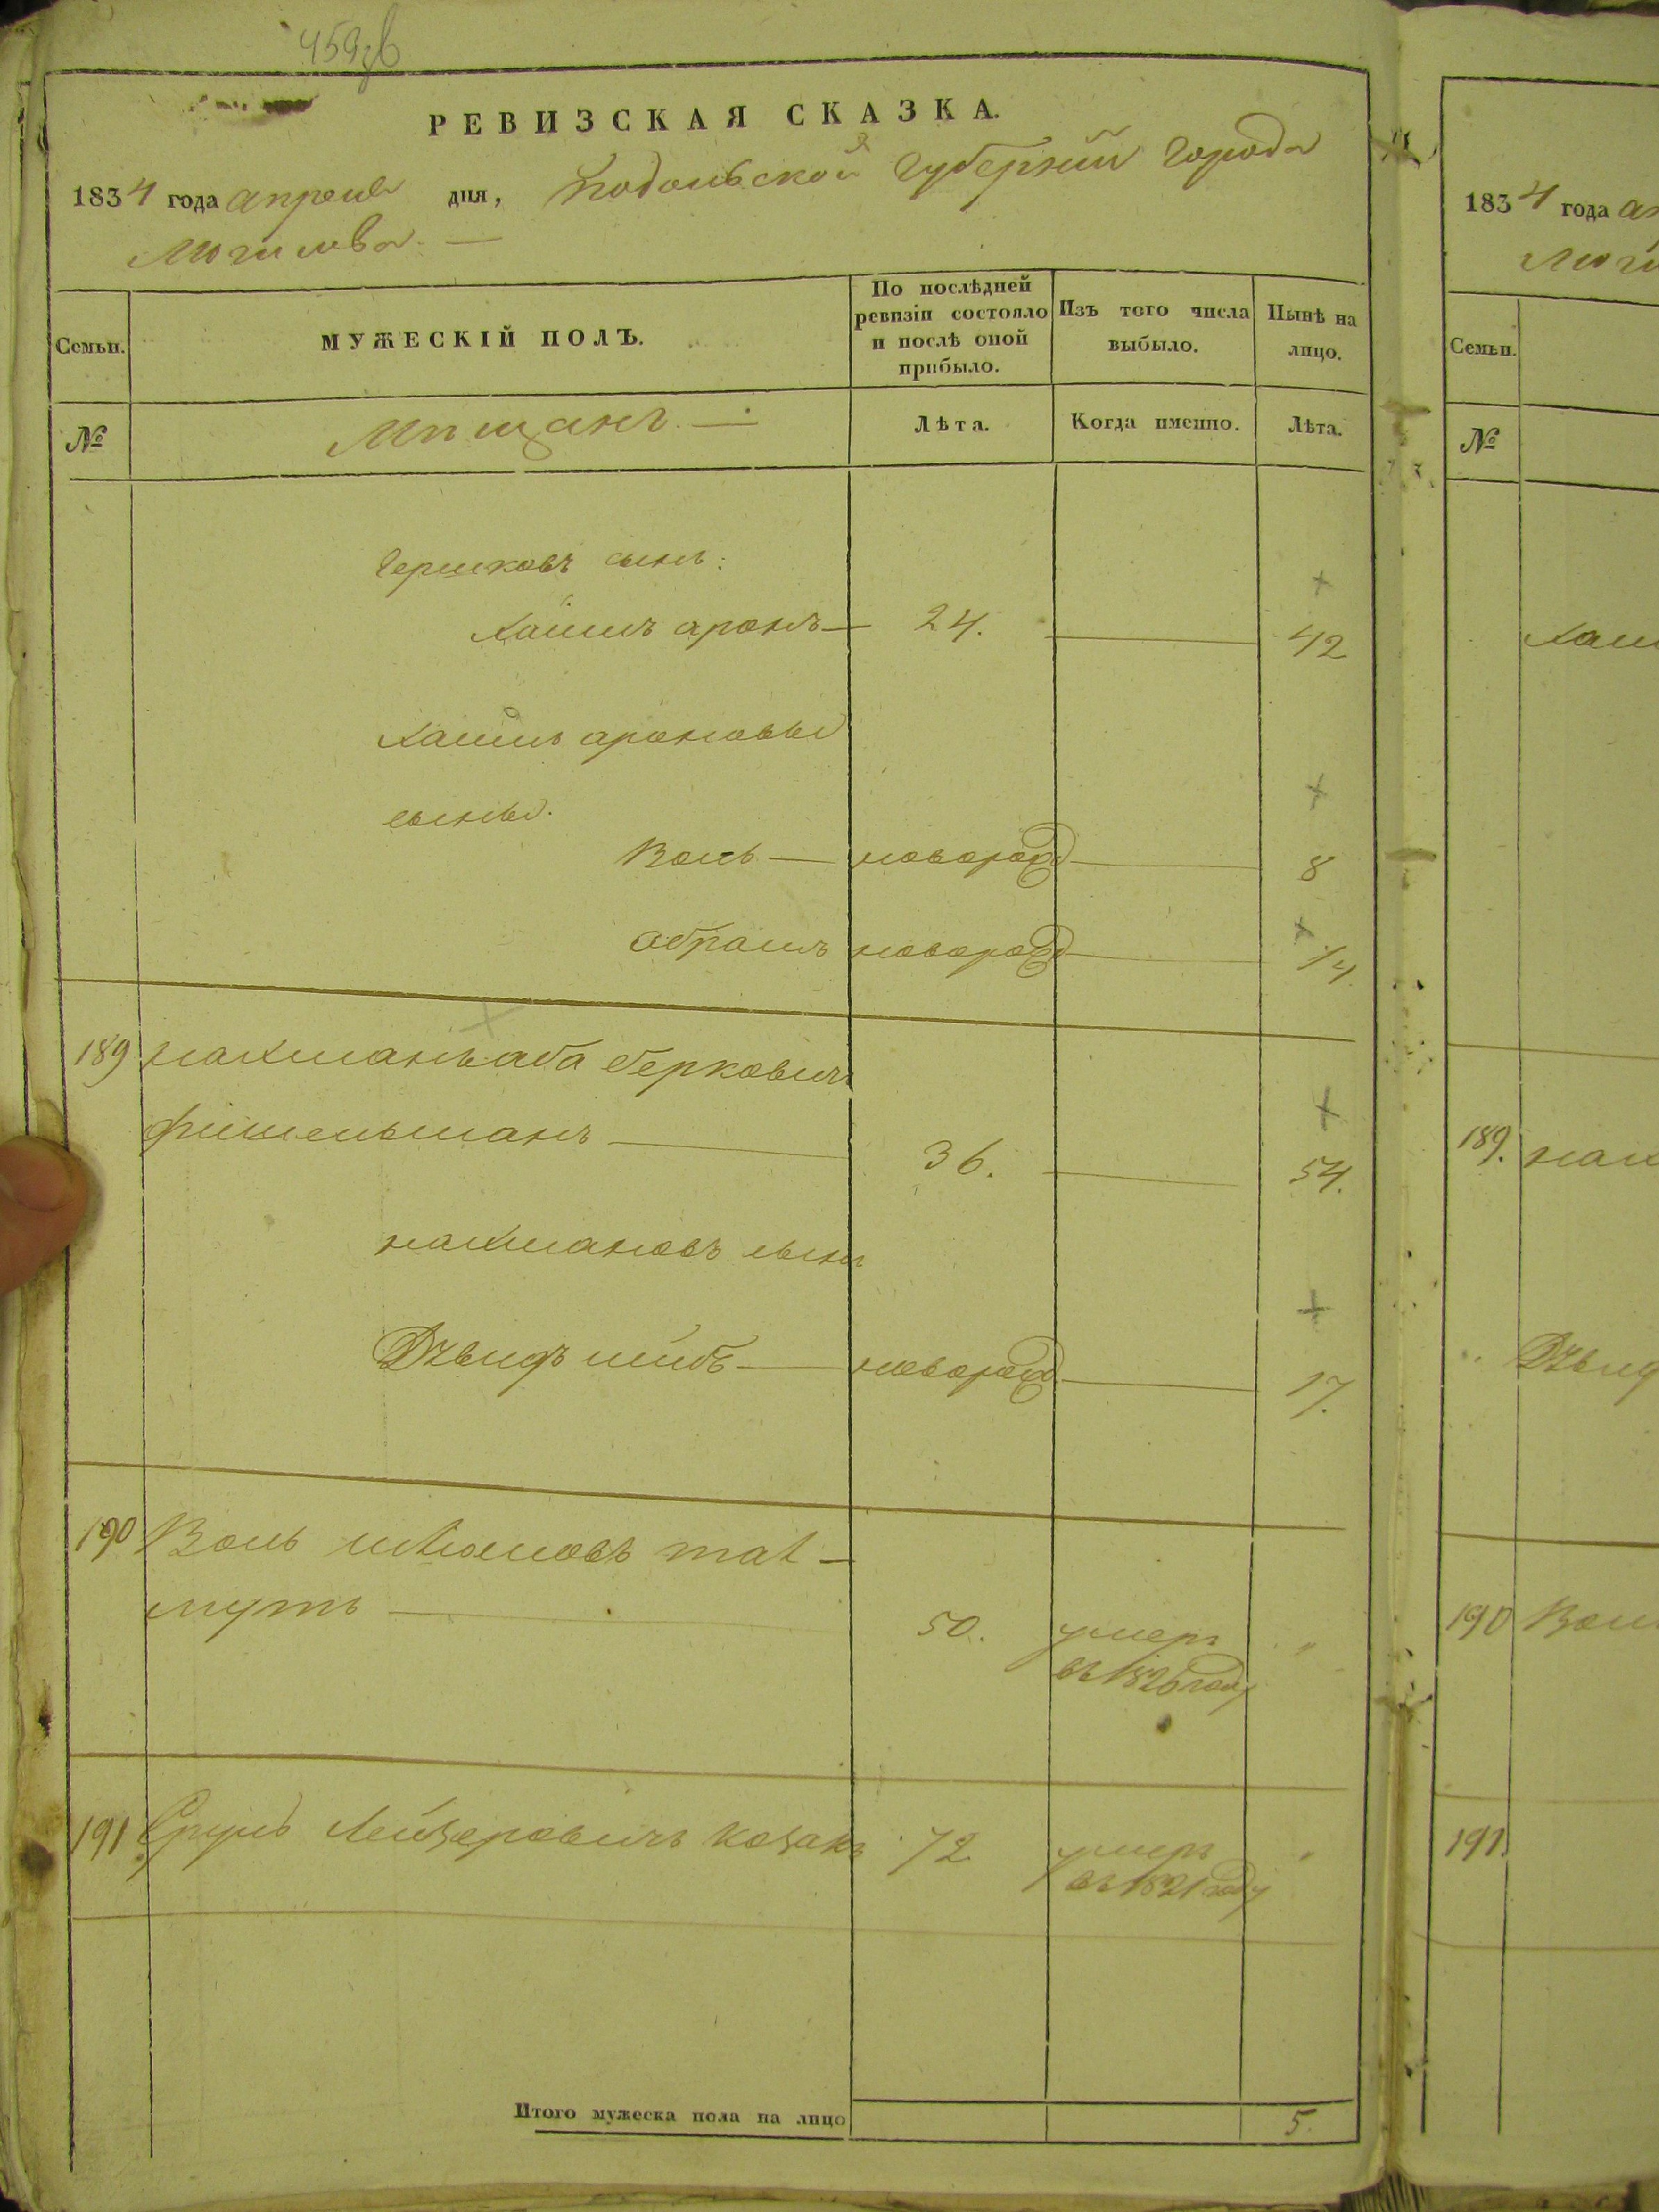 459зв
РЕВИЗСКАЯ СКАЗКА.
1834 года апреля дня, Подольской Губернии города
Могилева. —
Семьи.
МУЖЕСКІЙ ПОЛЪ.
По послѣдней ревизіи состояло и послѣ оной прибыло.
Изъ того числа выбыло.
Нынѣ на лицо.
№
Мѣщанъ. —
Лѣта.
Когда именно.
Лѣта.
Гершковъ сынъ:
Хаимъ аронъ — 24. — 42
Хаимъ ароновы
сыны.
Воль — новорожд — 8
абрамъ новорожд — 14
189 нахманъ аба берковичъ
фишельманъ — 36. — 54.
нахмановъ сынъ
лейбъ — новорожд — 17.
190 Воль
мутъ — 50. умеръ "
въ 1826 году
191 Сруль Лейзеровичъ козакъ 72 умеръ "
въ 1821 году
Итого мужеска пола на лицо 5.
1834 года ап
Моги
Семьи.
№
Хаи
189. нах
190 Вол
191.